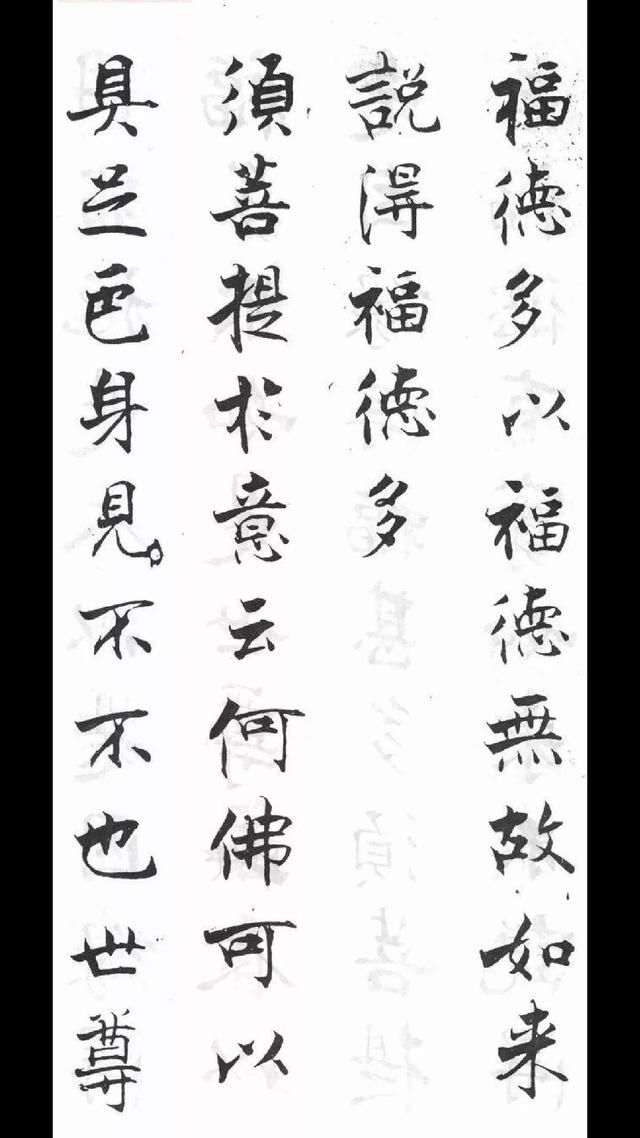 福德多以福德無故如来
説得福德多
須菩提於意云何佛可以
具足色身見不不也世尊